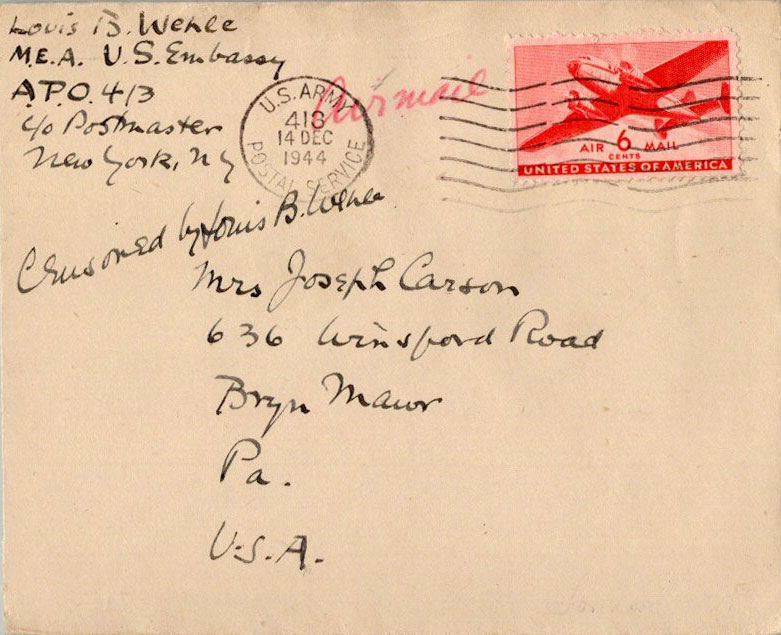 Louis B. Wehle
M.E.A. U.S. Embassy
A.P.O. 413
c/o Postmaster
New York, NY
Airmail
U.S. ARMY
413
14 DEC
1944
POSTAL SERVICE
AIR 6 MAIL
CENTS
UNITED STATES OF AMERICA
Censored by Louis B. Wehle
Mrs Joseph Carson
636 Winsford Road
Bryn Mawr
Pa.
U.S.A.